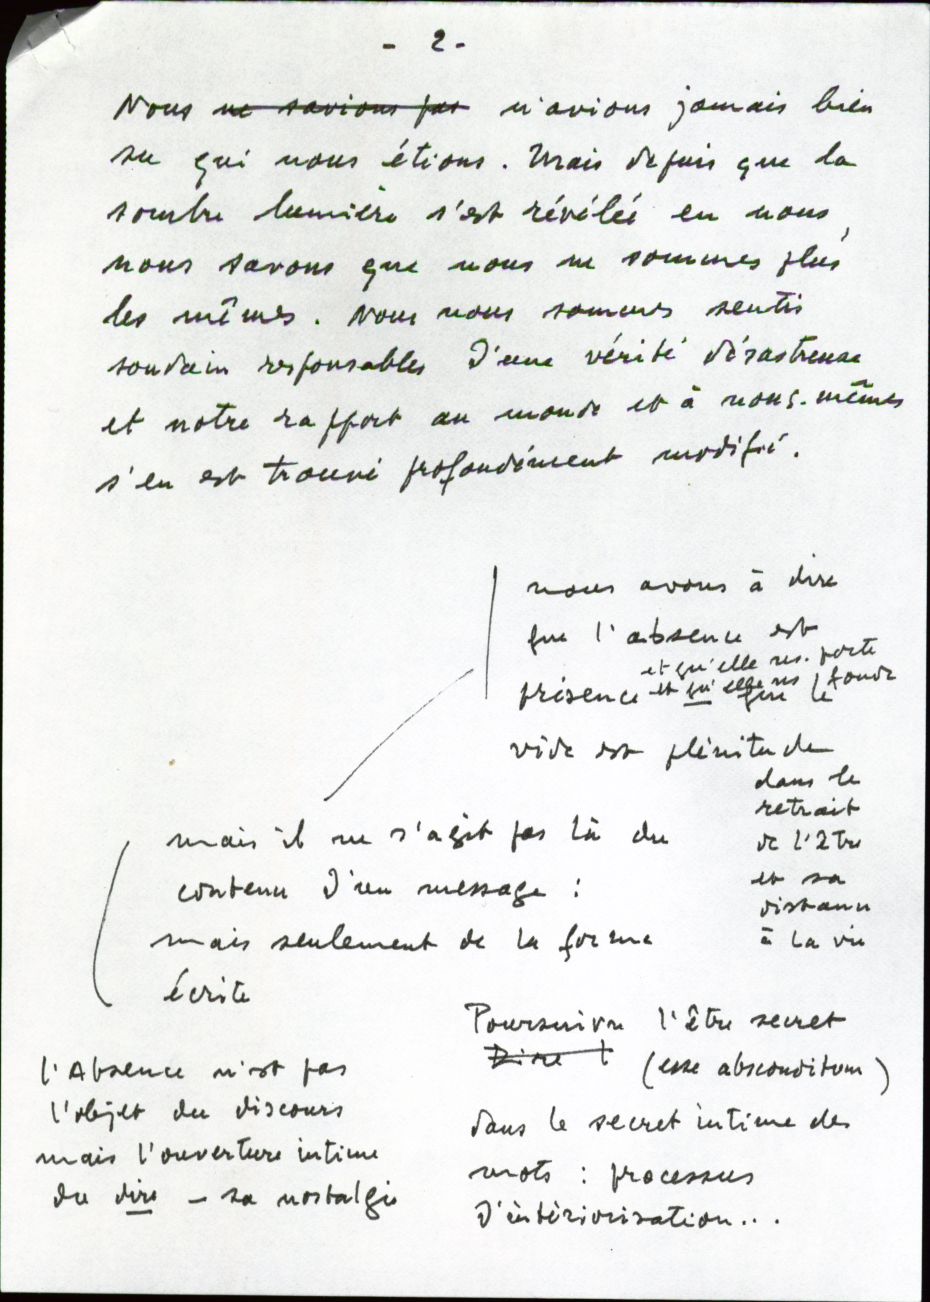 - 2 -
Nous ne savions pas n'avions jamais bien
su qui nous étions. Mais depuis que la
sombre lumière s'est révélée en nous,
nous savons que nous ne sommes plus
les mêmes. Nous nous sommes sentis
soudain responsables d'une vérité désastreuse
et notre rapport au monde et à nous-mêmes
s'en est trouvé profondément modifié.
nous avons à dire
que l'absence est
et qu'elle ns. porte
présence et qu'elle ns fonde
que le
vide est plénitude
dans le
retrait
de l'Être
et sa
distance
à la vie
mais il ne s'agit pas là du
contenu d'un message :
mais seulement de la forme
écrite
Poursuivre l'être secret
Dire l
(esse absconditum)
dans le secret intime des
mots : processus
d'intériorisation...
l'Absence n'est pas
l'objet du discours
mais l'ouverture intime
du dire - sa nostalgie